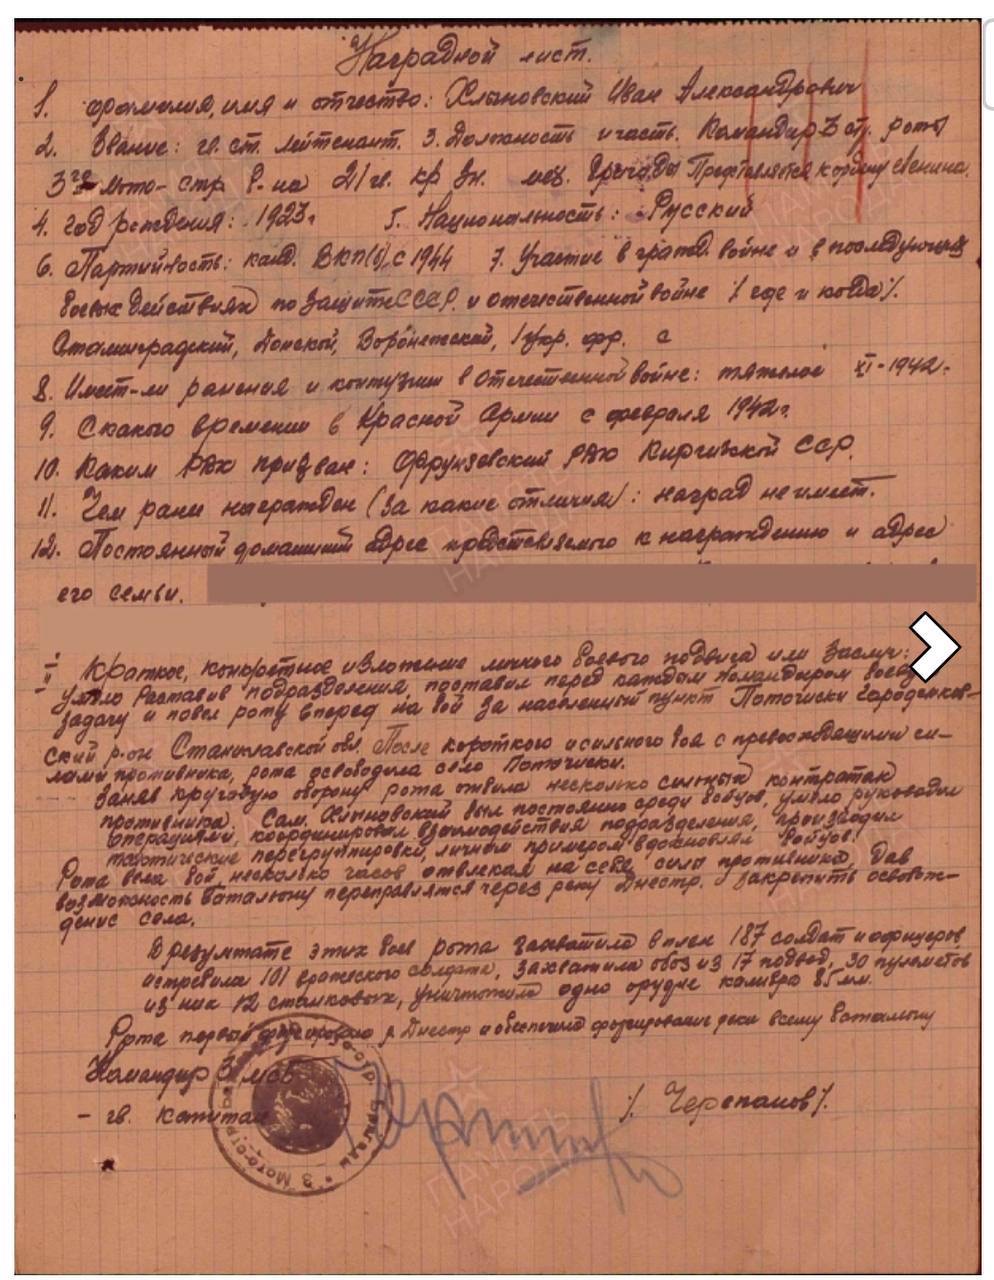 Наградной лист.
1. фамилия, имя и отчество: Хлыновский Иван Александрович
2. Звание: гв. ст. лейтенант. 3. Должность и часть. Командир 3 стр. роты
3го мото-стр б-на 21 гв. кр зн. мех. бригады Представляется к ордену Ленина.
4. год рождения: 1923г 5. Национальность: Русский
6. Партийность: канд. ВКП(б) с 1944 7. Участие в гражд. войне и в последующих
боевых действиях по защите СССР. и отечественной войне / где и когда /.
Сталинградский, Донской, Воронежский, 1 Укр. фр. с
8. Имеет-ли ранения и контузии в Отечественной войне: тяжелое XI-1942.
9. С какого времени в Красной Армии с февраля 1942г.
10. Каким РВК призван: Фрунзевский РВК Киргизской ССР.
11. Чем ранее награжден (за какие отличия): наград не имеет.
12. Постоянный домашний адрес представляемого к награждению и адрес
его семьи.
Краткое, конкретное изложение личного боевого подвига или заслуг:
умело расставив подразделения, поставил перед каждым командиром боевую
задачу и повел роту вперед на бой за населенный пункт Поточиски Городенков-
ский р-он Станиславской обл. После короткого и сильного боя с превосходящими си-
лами противника, рота освободила село Поточиски.
Заняв круговую оборону рота отбила несколько сильных контратак
противника. Сам. Хлыновский был постоянно среди бойцов, умело руководил
операциями, координировал взаимодействия подразделения, производил
тактические перегруппировки, личным примером вдохновлял бойцов.
Рота вела бой, несколько часов отвлекая на себя силы противника, Дав
возможность батальону переправлятся через реку Днестр. Закрепить освобож-
дение села.
В результате этих боев рота захватила в плен 187 солдат и офицеров
истребила 101 вражеского солдата, захватила обоз из 17 подвод, 30 пулеметов
из них 12 станковых, уничтожила одно орудие калибра 85 мм.
Рота первой форсировала р Днестр и обеспечила форсирование реки всему батальону
Командир 3 мсб
- гв. капитан / Черепанов /.